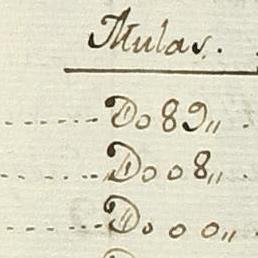 Mulas.
Do 89,,
Do 08,,
Do 00,,